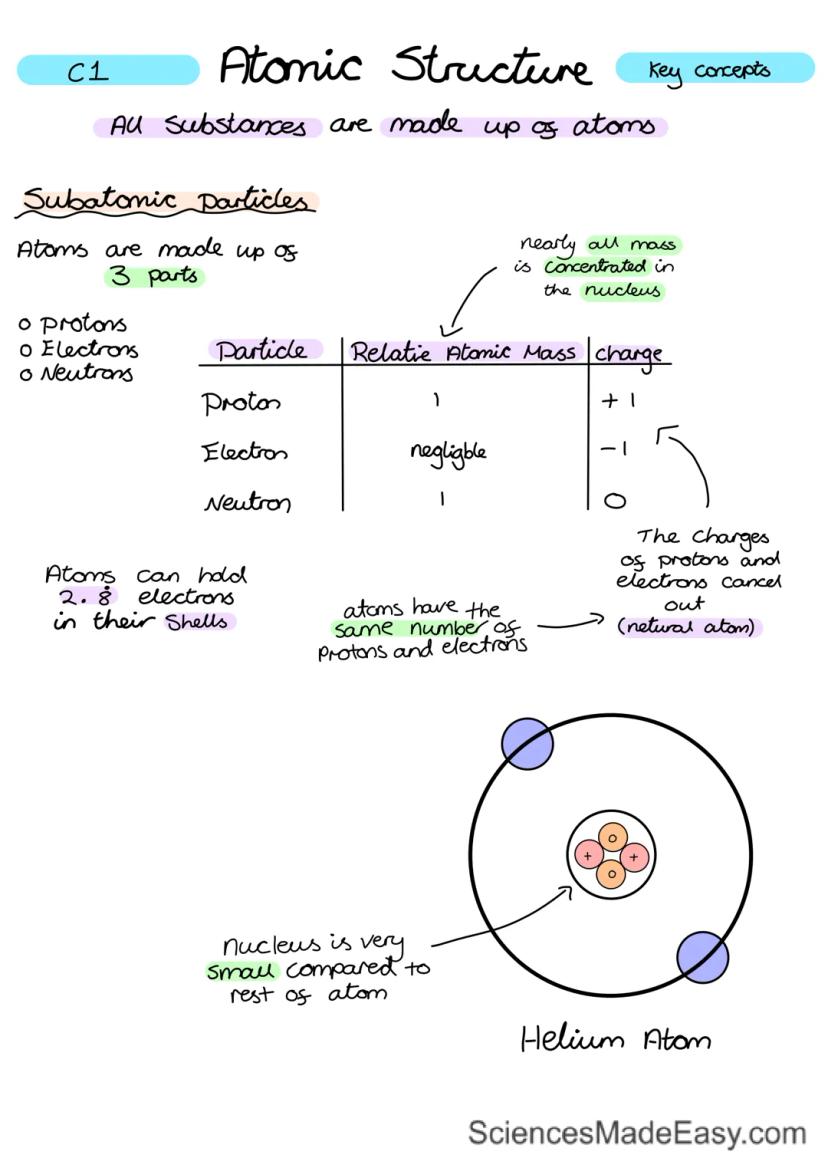 C1
Atomic Structure
Key concepts
All Substances are made up of atoms
Subatomic Particles
Atoms are made up of
3 parts
nearly all mass
is concentrated in
the nucleus
o Protons
o Electrons
o Neutrons
Particle Relatie Atomic Mass charge
Proton 1 +1
Electron negligble -1
Neutron 1 0
The charges
of protons and
electrons cancel
out
(netural atom)
Atoms can hold
2. 8 electrons
in their shells
atoms have the
same number of
protons and electrons
o
+ +
o
Nucleus is very
small compared to
rest of atom
Helium Atom
SciencesMadeEasy.com